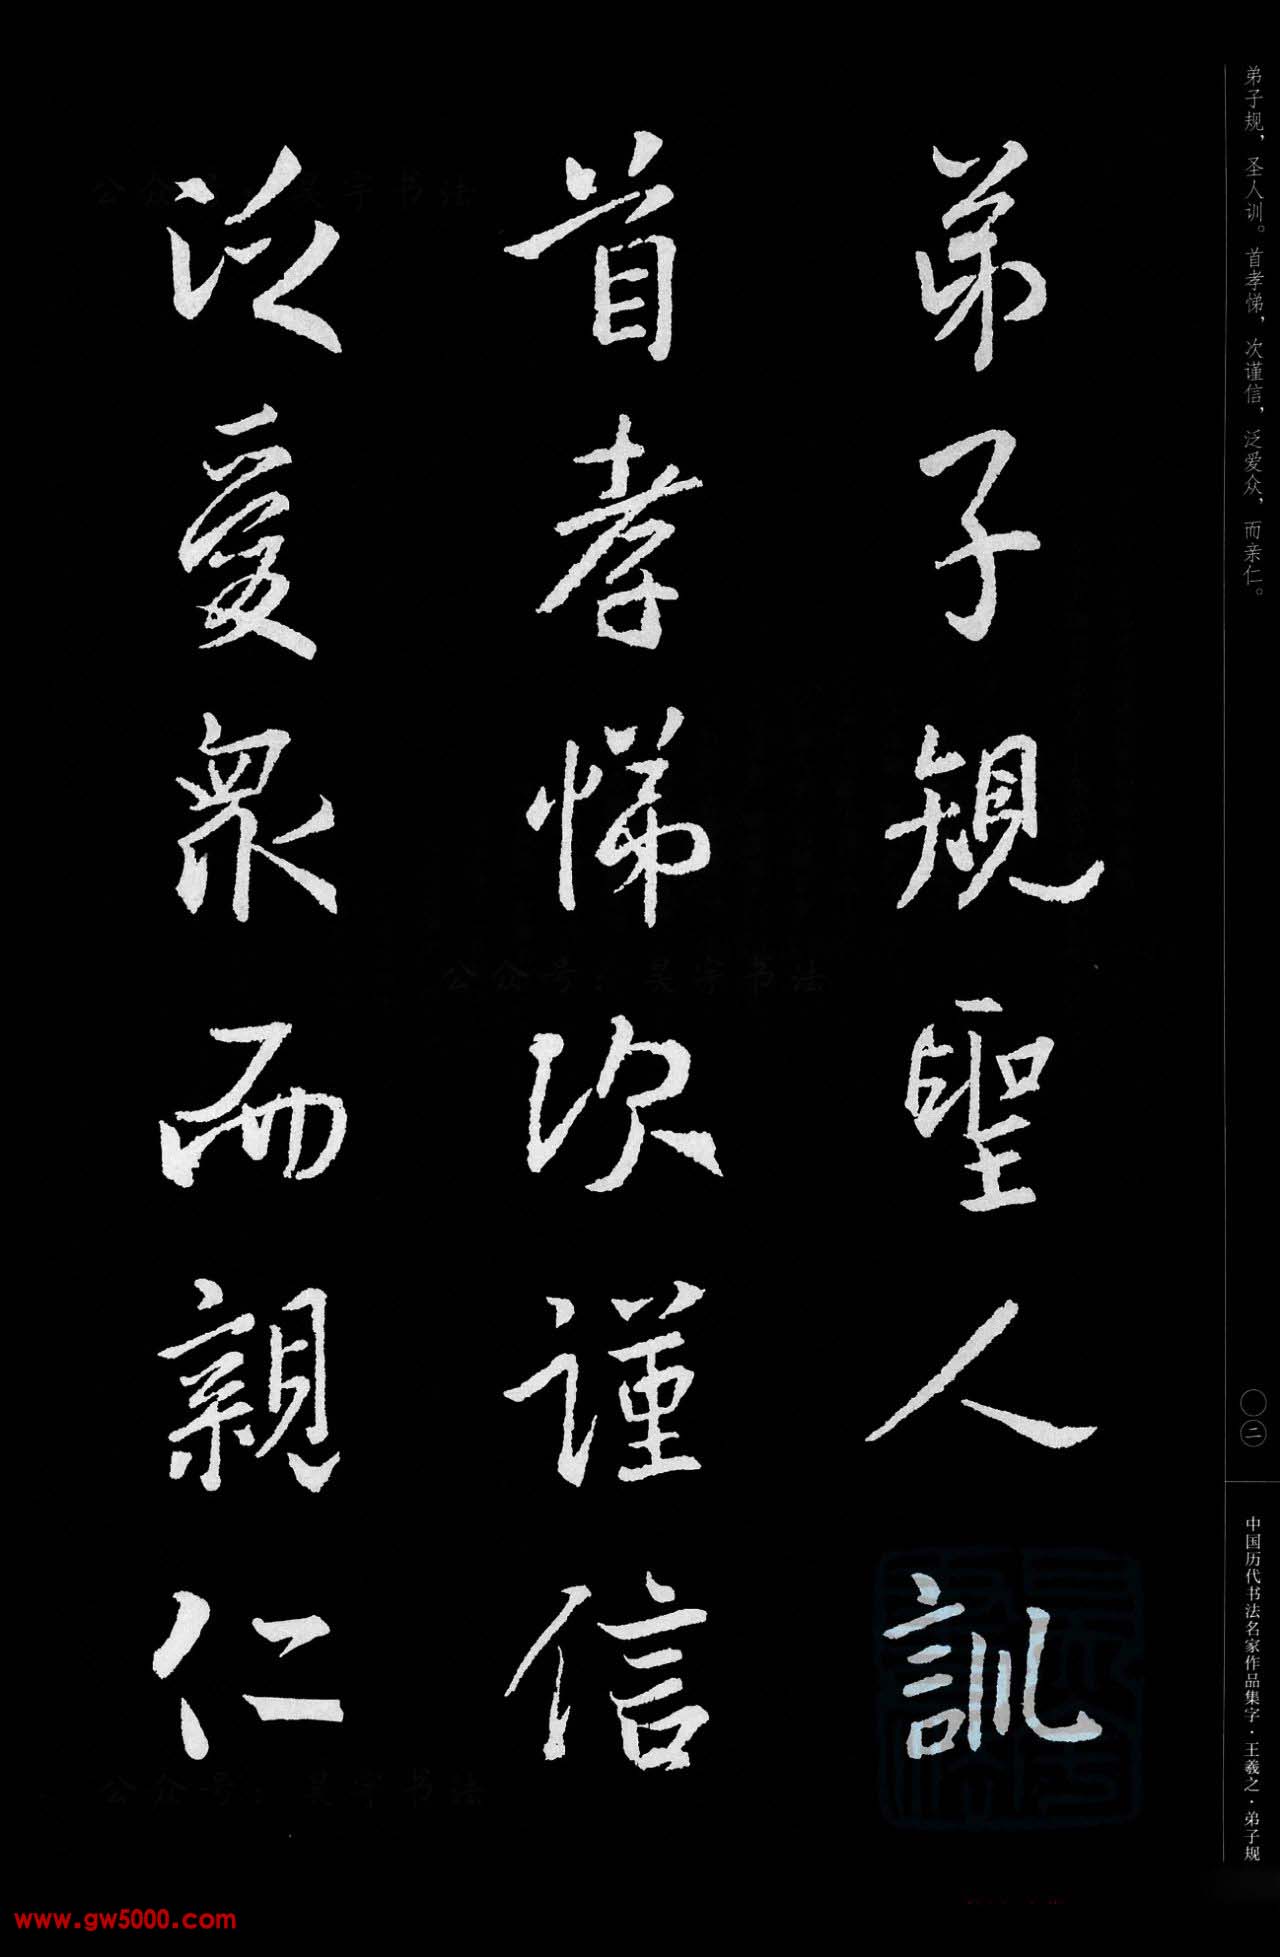 弟子規聖人訓
首孝悌次謹信
泛愛眾而親仁
弟子规，圣人训。首孝悌，次谨信，泛爱众，而亲仁。
〇二
中国历代书法名家作品集字·王羲之·弟子规
公众号：昊宇书法
公众号：昊宇书法
公众号：昊宇书法
www.gw5000.com